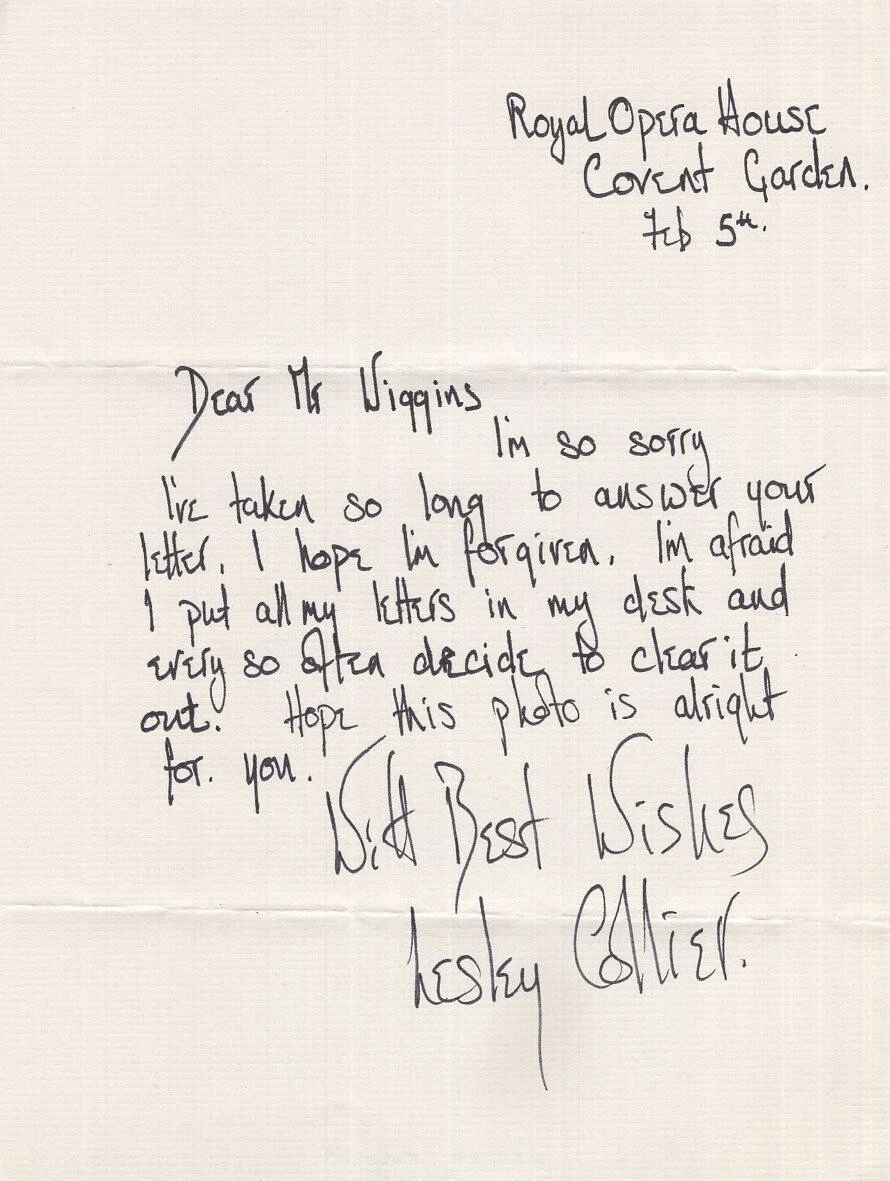 Royal Opera House
Covent Garden.
Feb 5th.
Dear Mr Wiggins
I'm so sorry
I've taken so long to answer your
letter. I hope I'm forgiven. I'm afraid
I put all my letters in my desk and
every so often decide to clear it
out. Hope this photo is alright
for. you.
With Best Wishes
Lesley Collier.